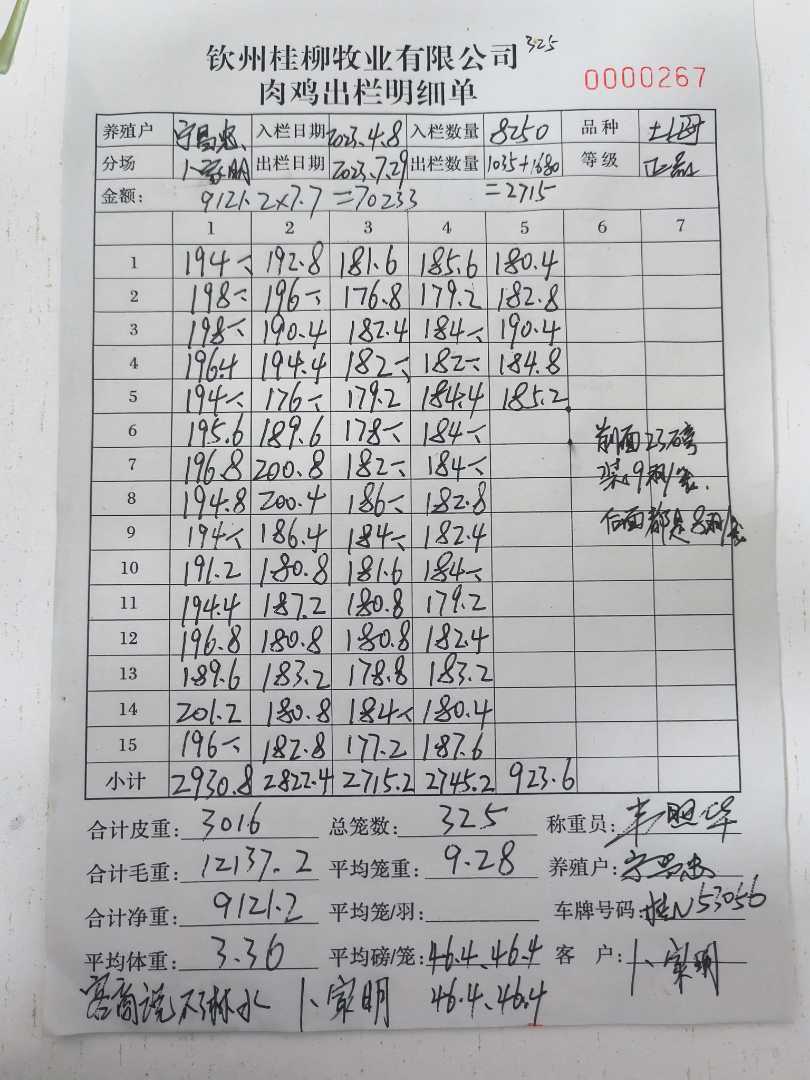 钦州桂柳牧业有限公司 325
肉鸡出栏明细单 0000267
养殖户 宁昌忠 入栏日期 2023.4.8 入栏数量 8250 品种 土
分场 卜家明 出栏日期 2023.7.29 出栏数量 1035+1680 等级 正品
金额: 9121.2×7.7=70233 =2715
1 2 3 4 5 6 7
1 194 192.8 181.6 185.6 180.4
2 198 196 176.8 179.2 182.8
3 198 190.4 182.4 184 190.4
4 196.4 194.4 182 182 184.8
5 194 176 179.2 184.4 185.2
6 195.6 189.6 178 184 前面23磅
7 196.8 200.8 182 184 装9羽/笼.
8 194.8 200.4 186 182.8 后面都是8羽/笼
9 194 186.4 184 182.4
10 191.2 180.8 181.6 184
11 194.4 187.2 180.8 179.2
12 196.8 180.8 180.8 182.4
13 189.6 183.2 178.8 183.2
14 201.2 180.8 184 180.4
15 196 182.8 177.2 187.6
小计 2930.8 2822.4 2715.2 2745.2 923.6
合计皮重: 3016 总笼数: 325 称重员:
合计毛重: 12137.2 平均笼重: 9.28 养殖户: 宁昌忠
合计净重: 9121.2 平均笼/羽: 车牌号码: 桂N53056
平均体重: 3.36 平均磅/笼: 46.4、46.4 客户: 卜家明
客商说不淋水 卜家明 46.4、46.4